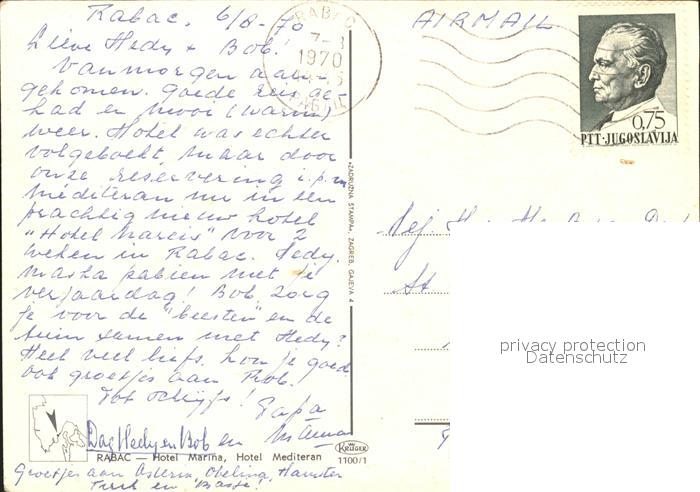 Rabac, 6/8-70
Lieve Hedy + Bob!
Vanmorgen aan-
gekomen. Goede reis ge-
had en mooi (warm)
weer. Hotel was echter
volgeboekt, maar door
onze reservering i.p.v.
Mediteran nu in een
prachtig nieuw hotel
"Hotel Narcis" voor 2
weken in Rabac. Hedy,
masha pabien met je
verjaardag! Bob, zorg
je voor de "beesten" en de
tuin samen met Hedy?
Heel veel liefs, hou je goed
ook groetjes aan Rob.
Tot schrijfs! Papa
Dag Hedy en Bob en Mama
RABAC — Hotel Marina, Hotel Mediteran
Groetjes aan Asterix, Obelina, Hamster
Turk en "Basje"!
"ZADRUŽNA ŠTAMPA", ZAGREB, GAJEVA 4
KRÜGER
1100/1
AIRMAIL
RABAC
1970
0,75
PTT·JUGOSLAVIJA
privacy protection
Datenschutz